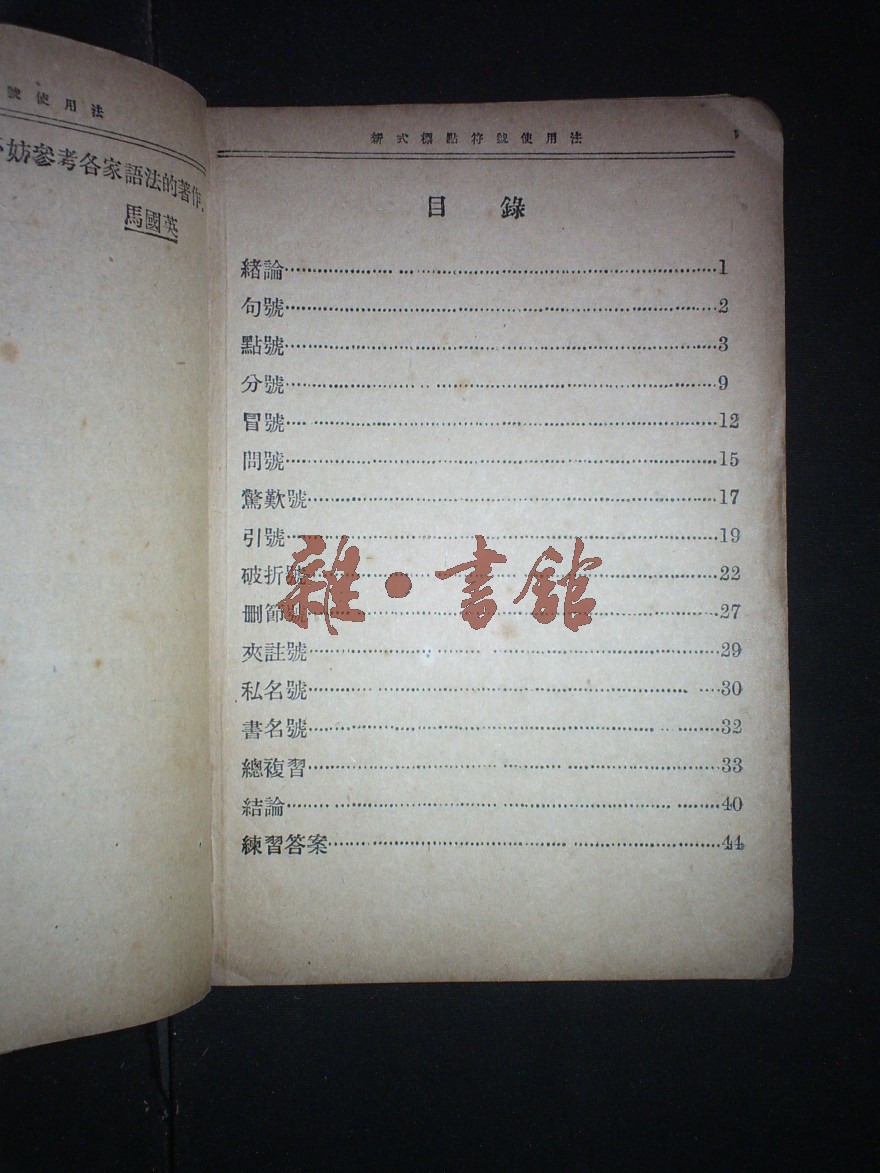 號使用法
妨參考各家語法的著作.
馬國英
新式標點符號使用法
目錄
緒論……1
句號……2
點號……3
分號……9
冒號……12
問號……15
驚歎號……17
引號……19
破折號……22
刪節號……27
夾註號……29
私名號……30
書名號……32
總複習……33
結論……40
練習答案……44
雜·書館